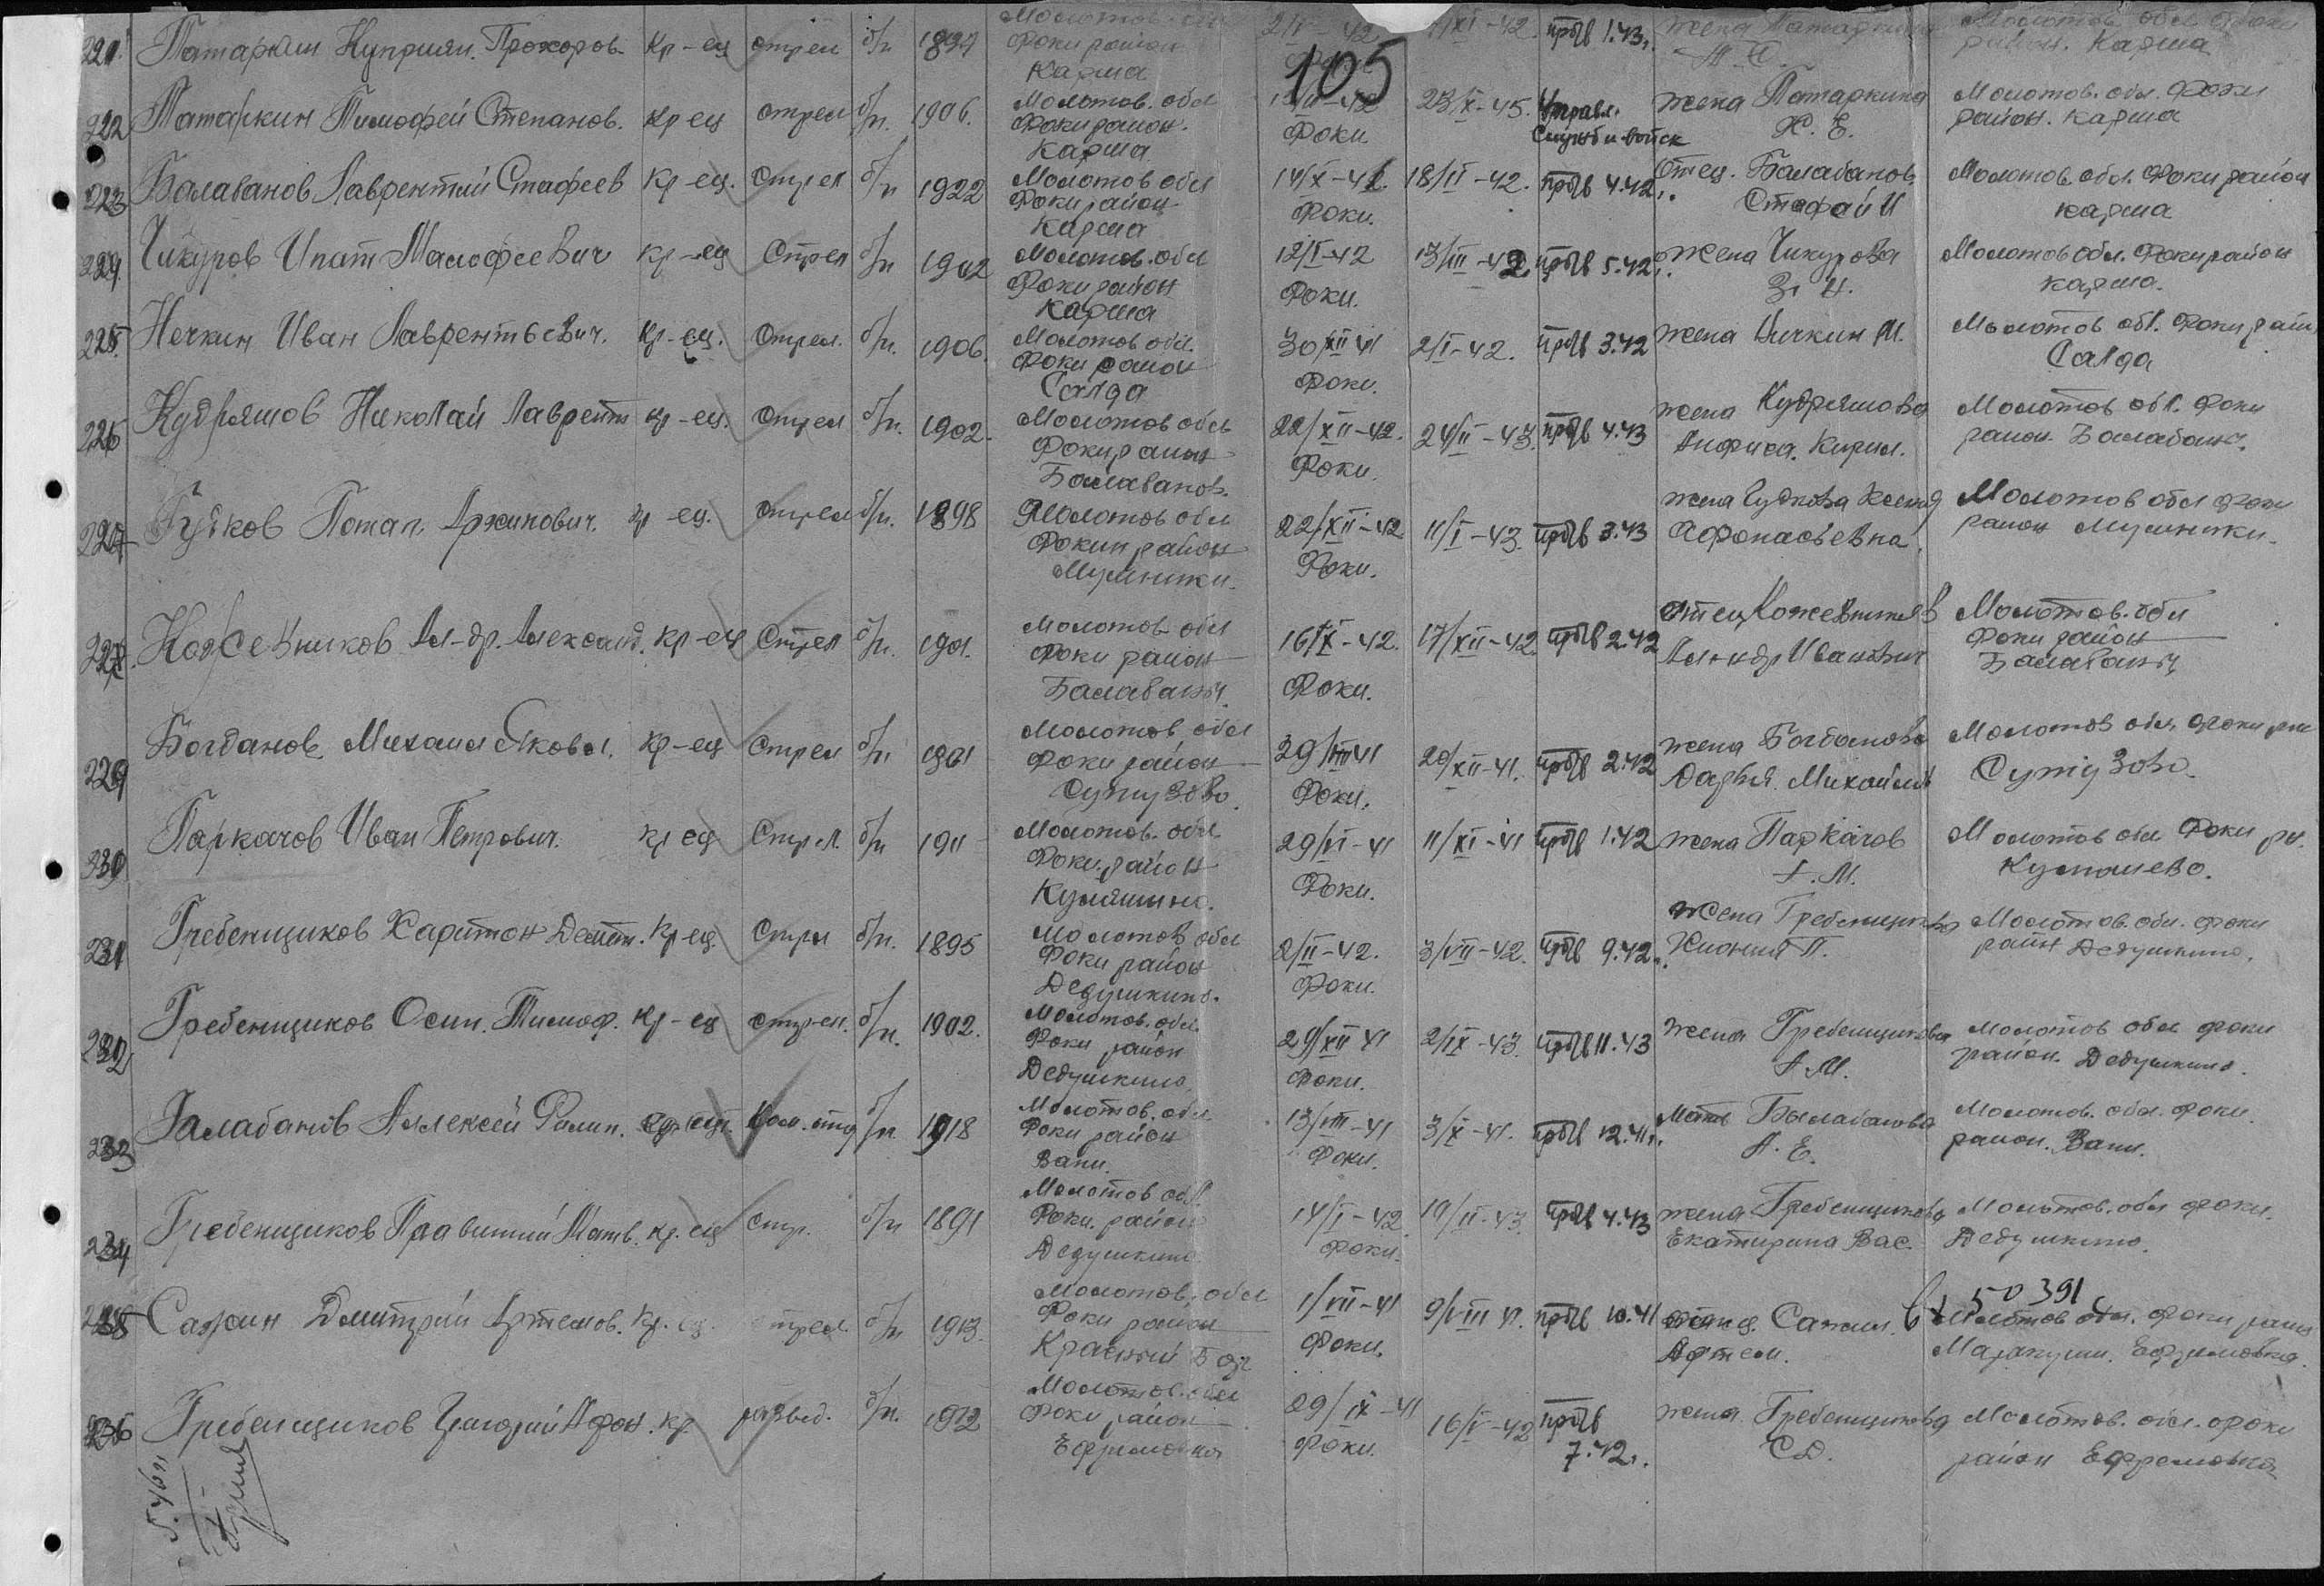 105
221. Татаркин Куприян. Прохоров. Кр-ец стрел б/п 1897 Молотов. обл Фоки район Карша 42 /XI-42. проп/в 1.43г. жена Татаркина Молотов. обл Фоки район. Карша
222 Татаркин Тимофей Степанов. Кр ец стрел б/п. 1906. Молотов. обл Фоки район. Карша Фоки 23/X-45. Управл. Служб и войск жена Татаркина Х. Е. Молотов. обл. Фоки район. Карша
223 Балабанов Лаврентий Стафеев Кр-ец. Стрел б/п 1922 Молотов обл Фоки район Карша 14/X-41 Фоки. 18/II-42. проп/в 4.42г. Отец. Балабанов. Стафей И Молотов. обл. Фоки район Карша
224. Чикуров Ипат Малофеевич кр-ец Стрел б/п 1902 Молотов. обл Фоки район Карша 12/I-42 Фоки. 13/III-42. проп/в 5.42г. Жена Чикурова З. И. Молотов обл. Фоки район Карша.
225. Нечкин Иван Лаврентьевич. Кр-ец. Стрел. б/п. 1906. Молотов обл. Фоки район Салда 30/XII 41 Фоки. 2/I-42. проп/в 3.42 жена Нечкин М. Молотов обл. Фоки рай Салда
226 Кудряшов Николай Лаврент кр-ец. Стрел б/п. 1902. Молотов обл Фоки район Балабанов. 22/XII-42. Фоки. 24/II-43. проп/в 4.43 жена Кудряшова Анфиса. Кирил. Молотов обл. Фоки район Балабаны.
227 Гудков Потап. Архипович. кр-ец. стрел б/п. 1898 Молотов обл Фокин район Мушники. 22/XII-42 Фоки. 11/I-43. проп/в 3.43 жена Гудкова Ксения Афонасьевна. Молотов обл Фоки район Мушники.
228. Кожевников Ал-др. Александ. кр-ец Стрел б/п. 1901. Молотов обл Фоки район Балабаны. 16/X-42. Фоки. 17/XII-42 проп/в 2.42 отец Кожевников Ал-ндр Иванович Молотов. обл Фоки район Балабаны
229 Богданов Михаил Яковл. Кр-ец Стрел б/п 1901 Молотов обл Фоки район Сутузово. 29/VIII 41 Фоки. 20/XII-41. проп/в 2.42 жена Богданова Дарья Михайлов Молотов обл. Фоки рай Сутузово.
230 Паркачов Иван Петрович. кр ец Стрел. б/п 1911 Молотов. обл Фоки. район 29/VI-41 Фоки. 11/XI-41 проп/в 1.42 жена Паркачов А. М. Молотов обл Фоки рн.
231 Гребенщиков Харитон Кр-ец. Стрел б/п. 1895 Молотов обл Фоки район Дедушкино. 2/II-42. Фоки. 3/VII-42. проп/в 9.42г. Жена Гребенщикова Хиония П. Молотов. обл. Фоки район Дедушкино.
232 Гребенщиков Осип. Тимоф. Кр-ец стрел. б/п. 1902. Молотов. обл. Фоки район Дедушкино. 29/XII 41 Фоки. 2/IX-43. проп/в 11.43 Жена Гребенщикова А. М. Молотов обл Фоки район. Дедушкино.
233 Балабанов Алексей Филип. кр-ец Ком. отд б/п 1918 Молотов. обл Фоки район Вани. 13/VIII-41 Фоки. 3/X-41. проп/в 12.41г. Мать Балабанова А. Е. Молотов. обл. Фоки. район. Вани.
234 Гребенщиков Матв. кр. ец стр. б/п 1891 Молотов обл. Фоки. район Дедушкино 14/I-42 Фоки. 10/II-43. проп/в 4.43 жена Гребенщикова Екатирина Вас. Молотов. обл Фоки. Дедушкино.
235 Сажин Дмитрий Артемов. Кр. ец. стрел. б/п 1913. Молотов. обл Фоки район Красный Бор 1/VII-41 Фоки. 9/VIII 41. проп/в 10.41 отец. Сажин. Артем. 50391 Молотов обл. Фоки район Маракуши. Ефремовка.
236 Гребенщиков Григорий Афон. кр. развед. б/п. 1912 Молотов. обл Фоки район Ефремовка 29/IX-41 Фоки. 16/V-42 проп/в 7.42г. жена Гребенщикова С. Д. Молотов. обл. Фоки район Ефремовка